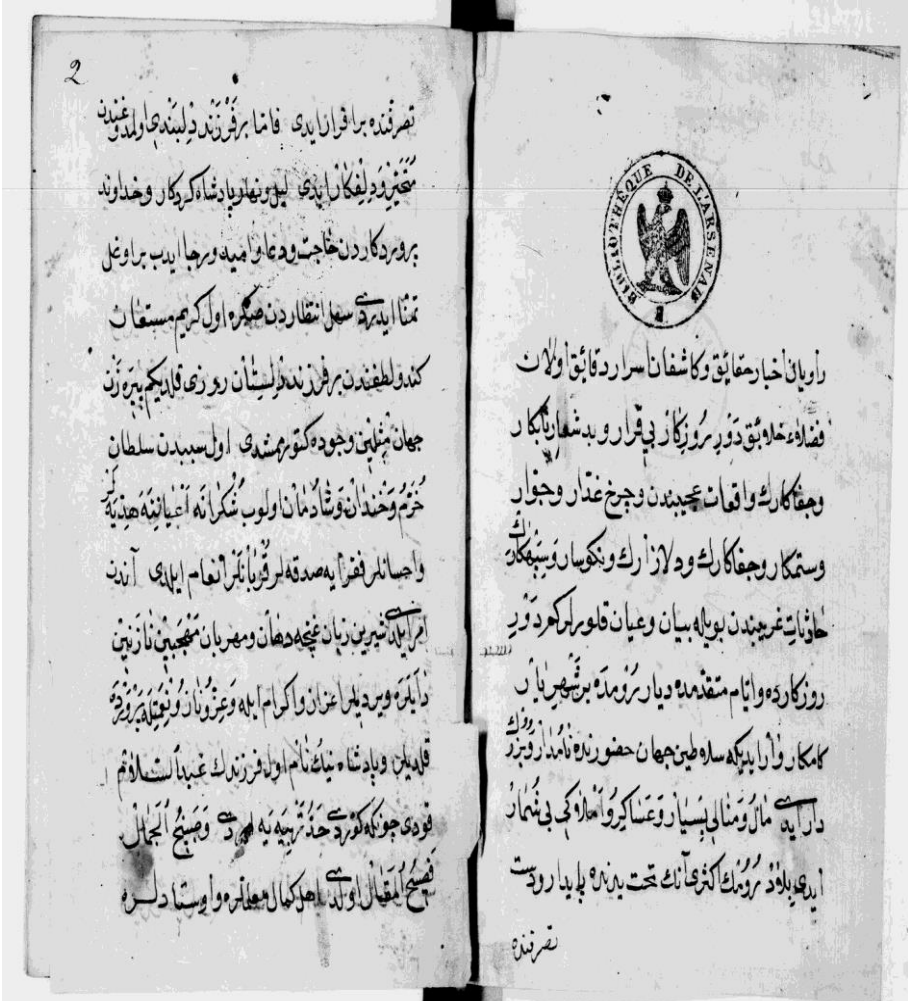 BIBLIOTHÈQUE DE L'ARSENAL
راويان اخبار حقائق وكاشفان اسرار دقائق اولان
فضلاء خلائق دَوْرِ بُروزكار بي قرار وبد شعار نابكار
وجفاكارك واقعات عجيبندن وچرخ غدّار وجوار
وستمكار وجفاكارك ودلازارك ونكوسار وسيهكارك
حادثات غريبندن بويله بيان وعيان قلورلركه دَوْرِ
روزكارده وايّام متقدّمده ديار رُومده بر شَهرِيار
كامكار وار ايديكه سلاطين جهان حضورنده نامدار وبزرك
دارايدى مال ومنالى بسيار وعساكر واملاكى بى شمار
ايدى بلاد رُومك اكثرى آنك تحت يدنده پايدار ودست
تصرفنده
2
تصرفنده برقرار ايدى فامّا بر فَرْزَند دِلبَندى اولمدوغندن
متحيّر ودِلفكار ايدى ليل ونهار پادشاه كردكار وخداوند
پروردكاردن حاجت ودعا واميد ورجا ايدب بر اوغل
تمنّا ايدردى انتظاردن صكره اول كريم مستعان
كندو لطفندن بر فرزند دلستان روزى قلديكم پيره زن
جهان مثلين وجوده كتورمشدى اول سببدن سلطان
خُرّم وخندان وشادمان اولوب شكرانه اعيانينه هديه لر
واحسانلر فقرايه صدقه لر قربانلر انعام ايلدى آندن
شيرين زبان غنچه دهان ومهربان نازنين
دايلره ويرديلر اعزاز واكرام ايله وعزّ وناز ونعمتله پرورده
قلديلر وپادشاه نيك نام اول فرزندك عبد السلام
قودى چونكه كوردى حدّ تربيه يه وصبيح الجمال
فصيح المقال اولدى اهل كمال معلملره واوستادلره